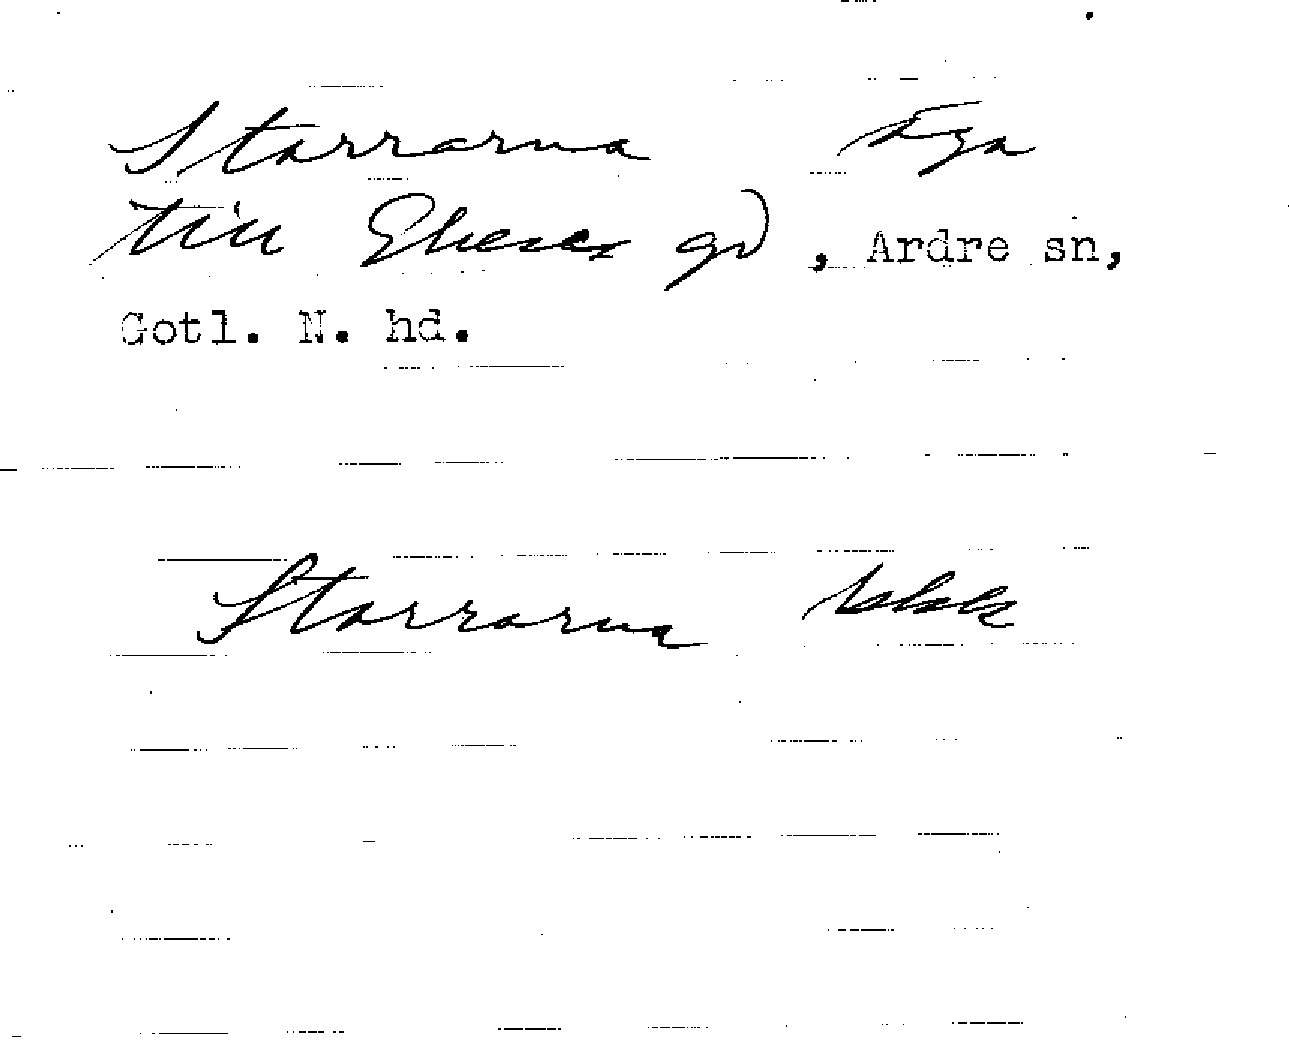 Starrarna Äga
till Gheses gd, Ardre sn,
Gotl. N. hd.
Starrarna